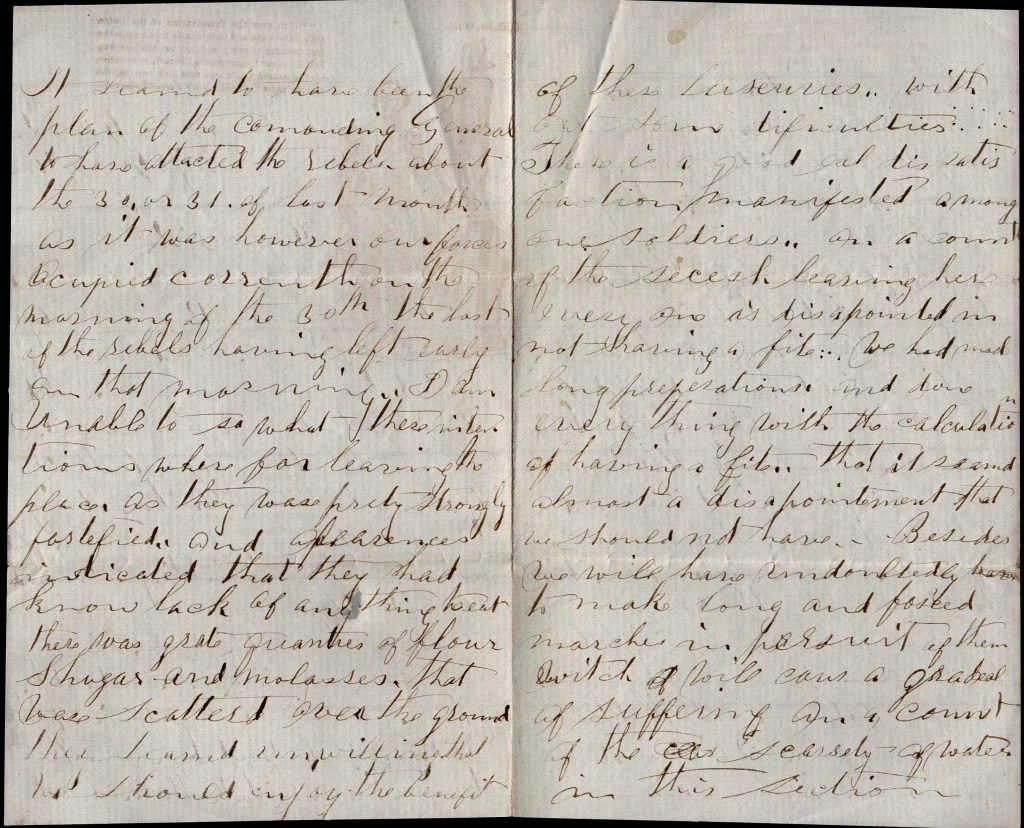 It seamd to have been the
plan of the comonding General
to have attacted the rebels about
the 30, or 31. of last month
as it was however our forces
Ocupied correnth on the
morning of the 30th the last
of the rebels having left early
on that morning.. I am
Unable to sa what there inten
tions where for leaving the
place. as they wase prety strongly
fortefied.. and apearences
indicated that they had
know lack of any thing to eat
there was grate quanties of flour
Shugar and molasses. that
wase scatterd over the ground
they seamd unwilling that
we should enjoy the benefit
of there luxeuries.. with
out some dificulties
There is a good eal dis satis
faction manifested among
our soldiers.. on a count
of the secesh leaving here
Every one is disapointed in
not having a fite... We had mad
long preperations. and done
every thing with the calculation
of having a fite.. that it seamd
almost a disapointement that
we should not have.- Besides
we will have undoubtedly
to make long and forced
marches in persuit of them
witch will caus a gradeal
of suffering on a count
of the scarsety of water
in this section